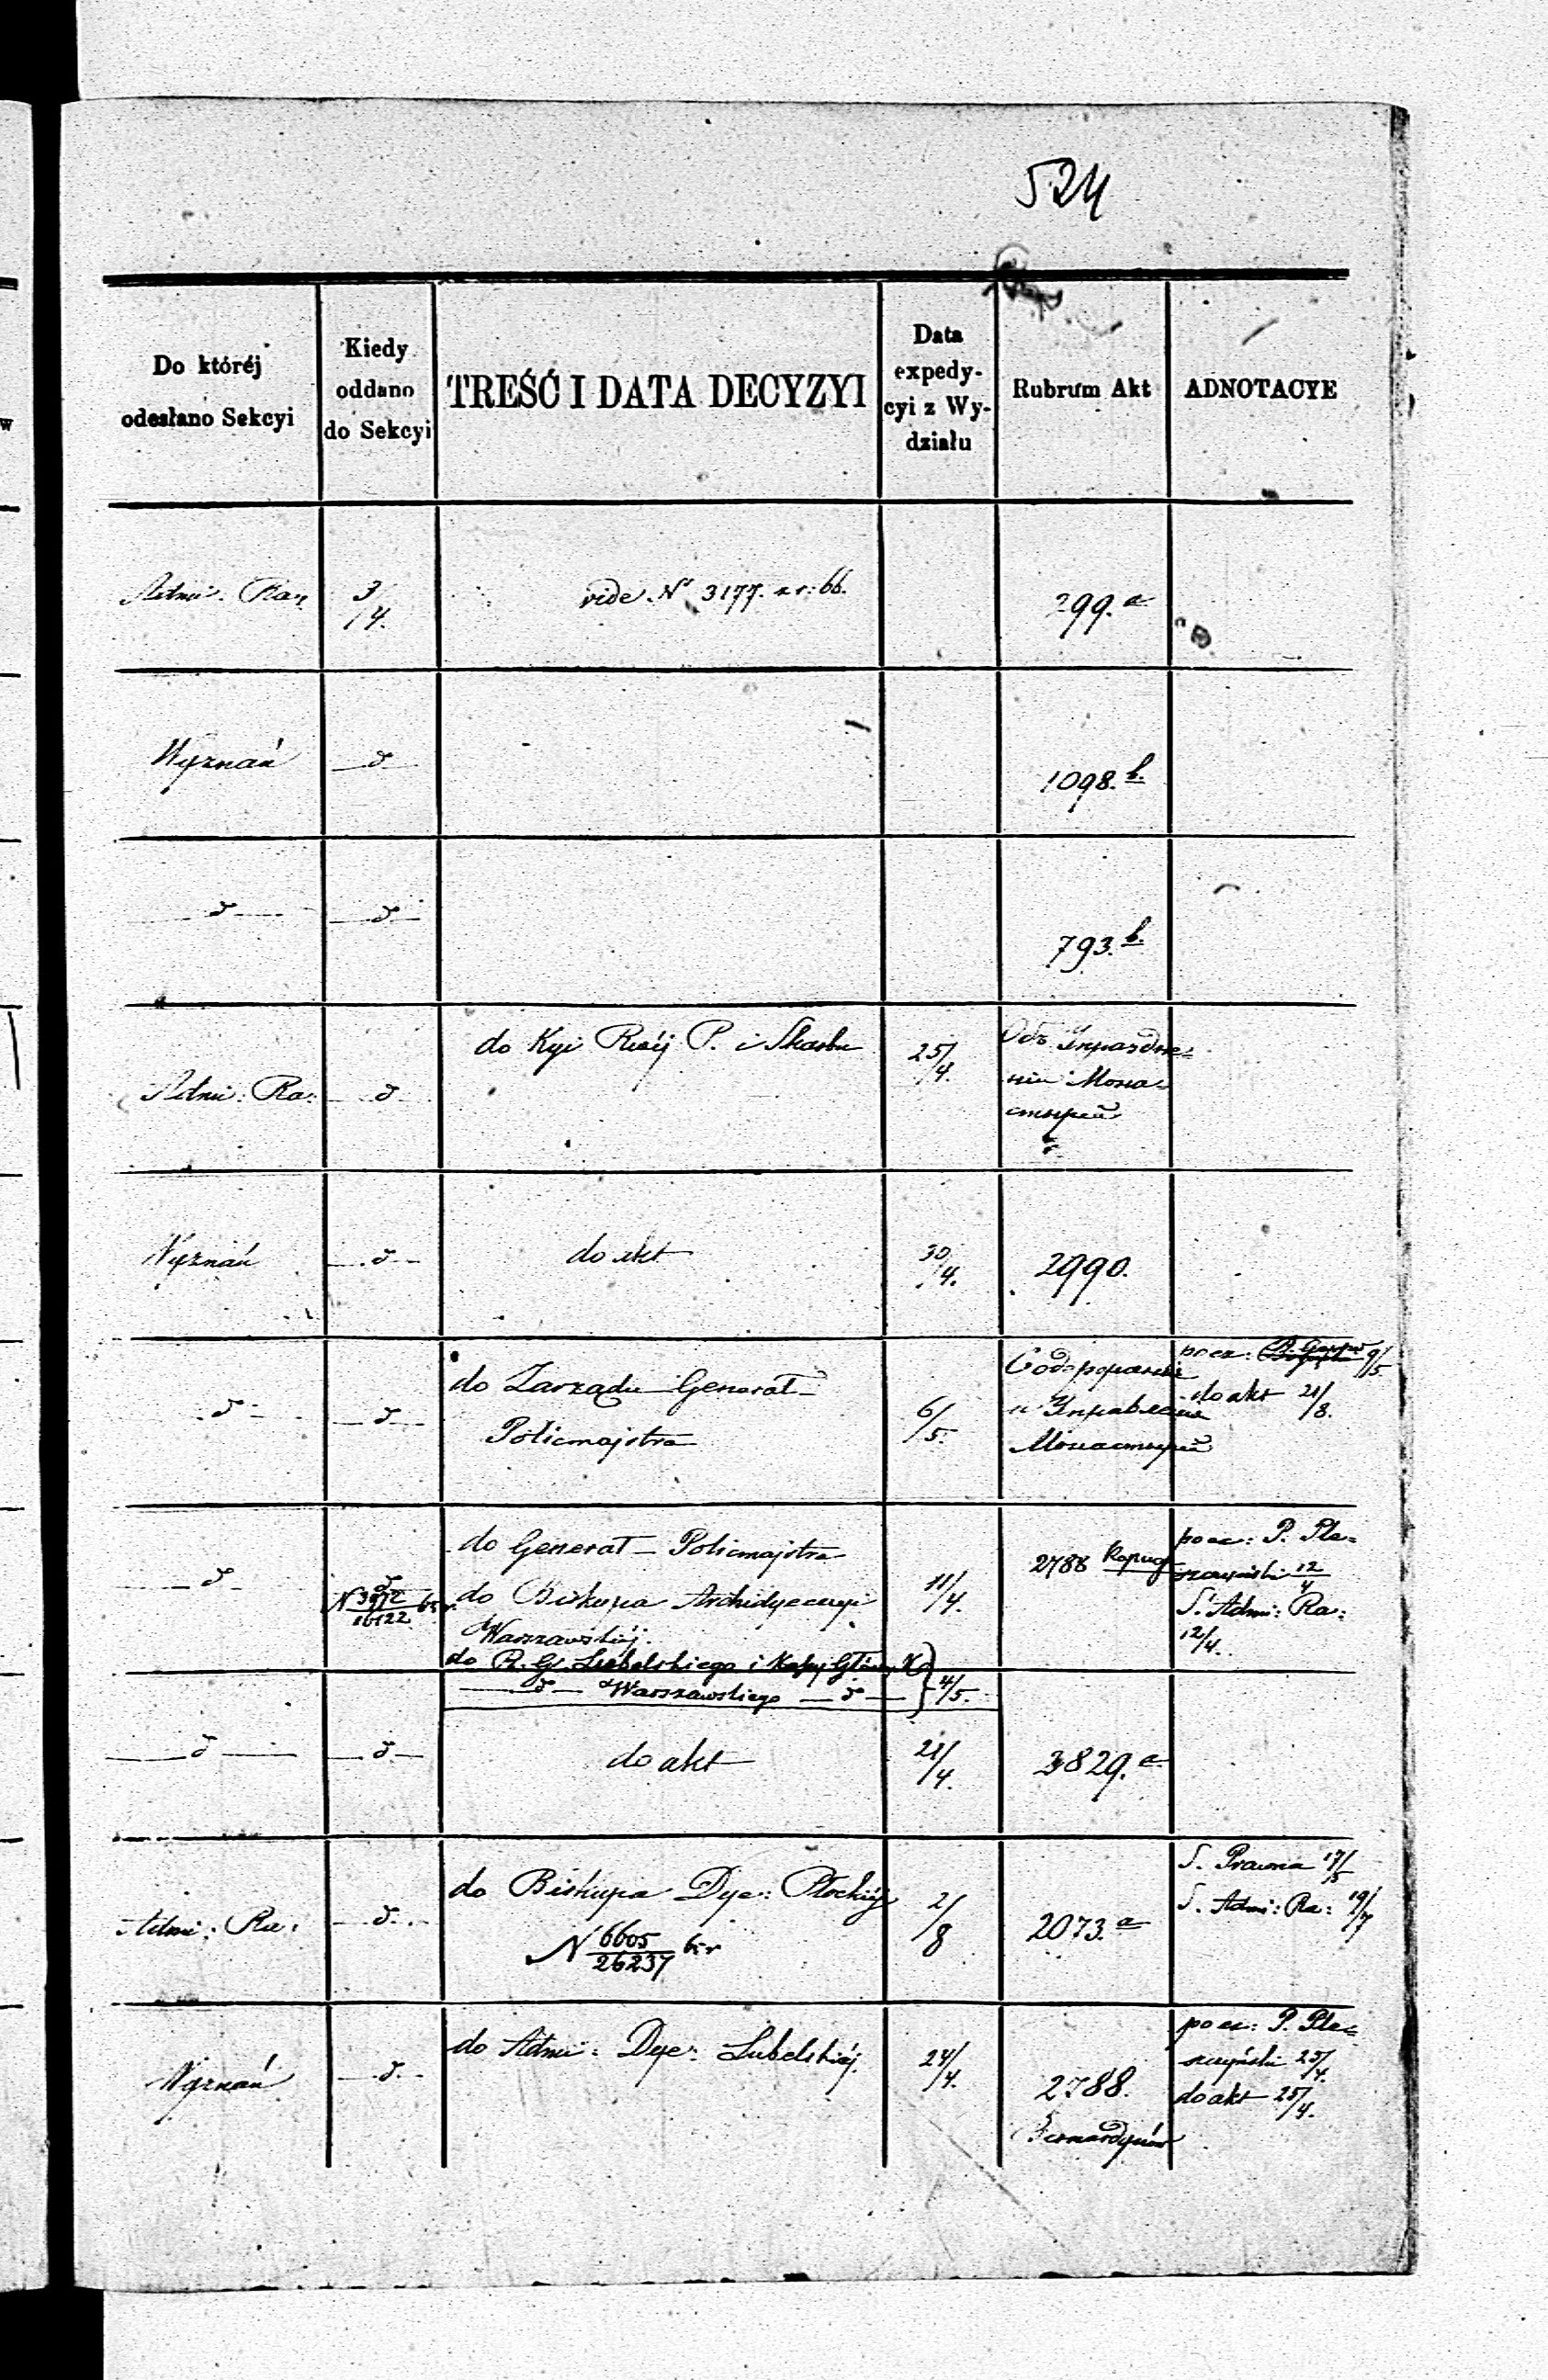 524
Do któréj
odesłano Sekcyi
Kiedy
oddano
do Sekcyi
TREŚĆ I DATA DECYZYI
Data
expedy-
cyi z Wy-
działu
Rubrum Akt
ADNOTACYE
Admi: Ra:
3/4.
vide Nr 3177. a r: 66.
299. a
Wyznań
d
1098. b.
d
d
793. b.
Admi: Ra:
d
do Kyi Rząj P. i Skarbu
25/4.
Объ Упраздне=
нiи Мона=
стырей
Wyznań
d
do akt
30/4.
2990.
d
d
do Zarządu Generał-
Policmajstra
6/5.
и Управленiи
Монастырей
po ex: 9/5
do akt 21/8.
d
d
N 16122 65 r.
do Generał-Policmajstra
do Biskupa Archidyecezyi
Warszawskiéj.
do R. G. Lubelskiego i Kasy Główn:
d Warszawskiego d
11/4.
4/5.
2788
po ex: P. Ple=
szczyński 12/4
S. Admi: Ra:
12/4.
d
d
do akt
21/4.
3829. a
Admi: Ra:
d
do Biskupa Dye: Płockiéj
N 6605/26237 65 r
2/8
2073. a
S. Prawna 17/5
S. Admi: Ra: 19/7
Wyznań
d
do Admi: Dye: Lubelskiéj
24/4.
2788.
Bernardynów
po ex: P. Ple=
szczyński 25/4.
do akt 25/4.